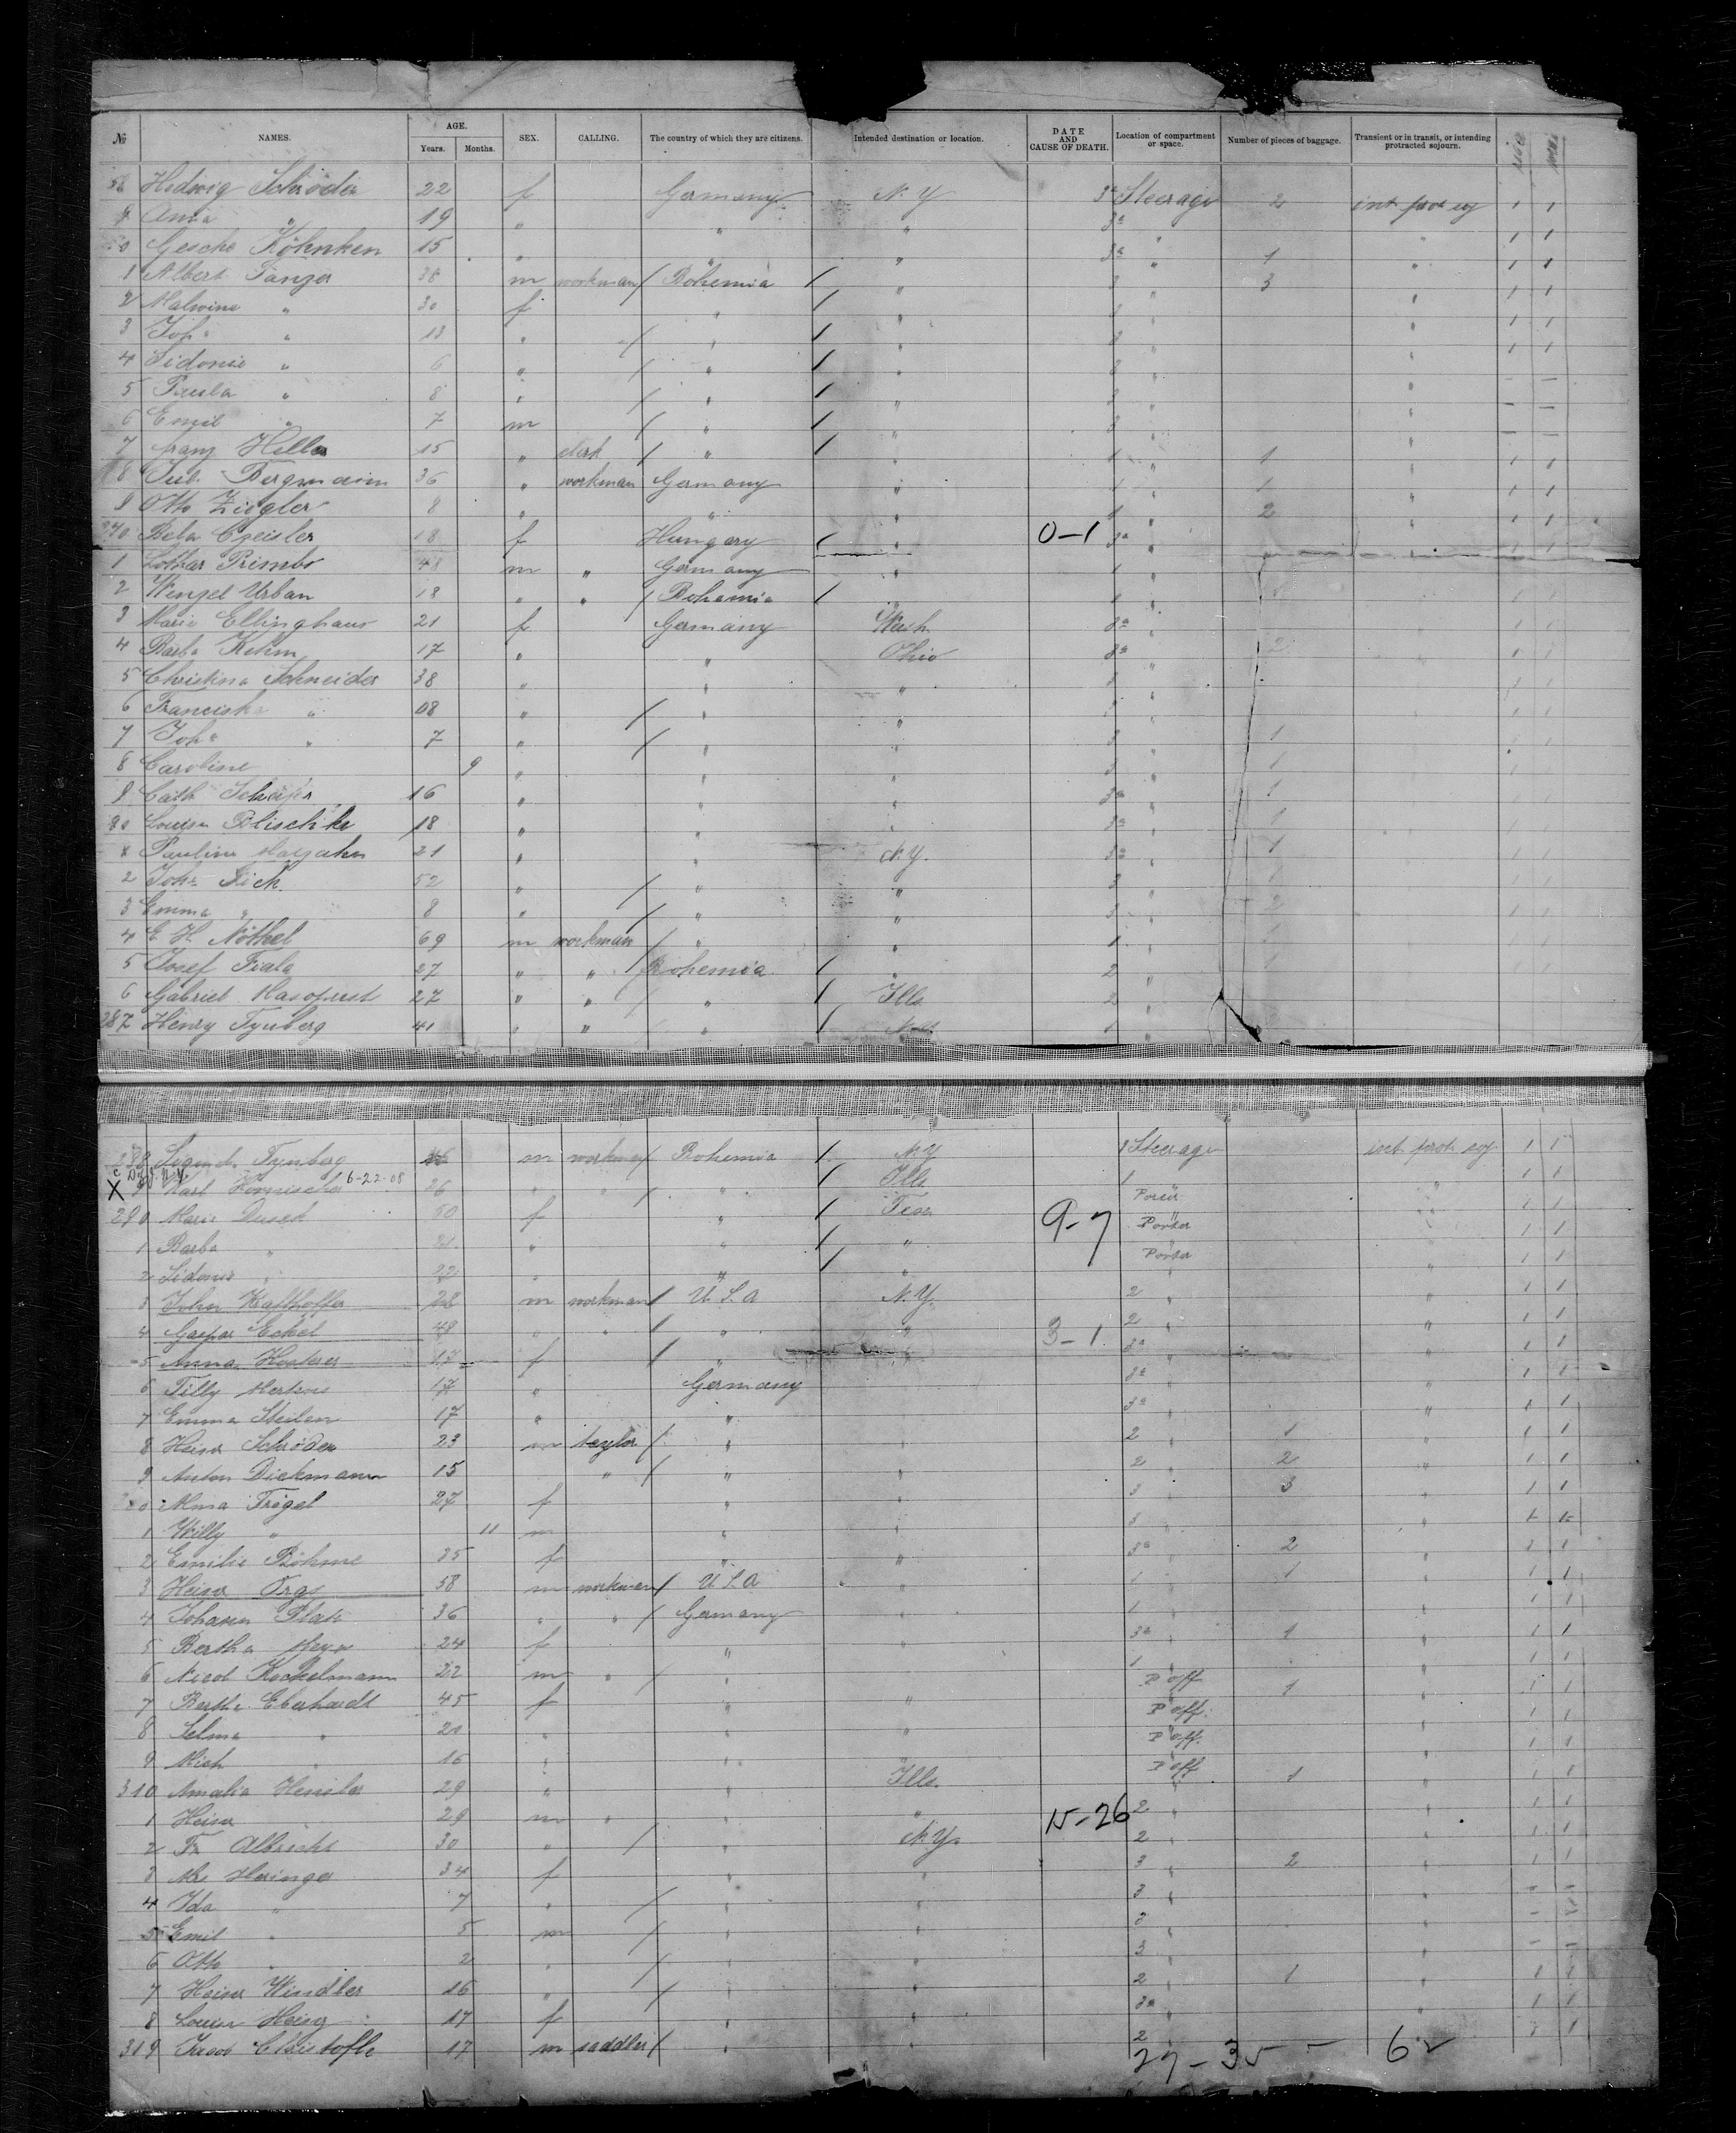 № NAMES. AGE. Years. Months. SEX. CALLING. The country of which they are citizens. Intended destination or location. DATE AND CAUSE OF DEATH. Location of compartment or space. Number of pieces of baggage. Transient or in transit, or intending protracted sojourn.
Hedwig Schröder 22 f Germany N. Y 3a Steerage 2 int prot soj 1 1
9 Anna " 19 " " " 3a " " 1 1
0 Gesche Köhnken 15 " " " 3a " 1 " 1 1
1 Albert Tanzer 38 m workman / Bohemia / " 3 " 3 " 1 1
2 Malwine " 30 f " / " 3 " " 1 1
3 Joha " 13 " / " / " 3 " " 1 1
4 Sidonie " 6 " / " / " 3 " " - -
5 Paula " 8 " / " / " 3 " " - -
6 Emil " 7 m / " / " 3 " " - -
7 Franz Heller 15 " clerk / " / " 1 " 1 " 1 1
8 Jul. Bergmann 36 " workman Germany " 1 " 1 " 1 1
9 Otto Ziegler 8 " " " 1 " 2 " 1 1
270 Bela Czeisler 18 f Hungary / " 0-1 3a " 1 1
1 Lothar Primbs 48 m " Germany " 1 " 1 1
2 Wenzel Urban 18 " " / Bohemia / " 1 " 1 1
3 Marie Ellinghaus 21 f Germany Wash. 3a " 1 1
4 Barba Kehm 17 " " Ohio 3a " 2 1 1
5 Christina Schneider 38 " " " 3 " 1 1
6 Franciska " 08 " / " " 3 " 1 1
7 Joha " 7 " / " " 3 " 1 1
8 Caroline 9 " " " 3 " 1 1
9 Cath 16 " " " 3a " 1 1 1
80 Louisa Blischke 18 " " " 3a " 1 1 1
Pauline 21 " " N.Y. 3a " 1 1 1
2 Joha Sick 52 " / " " 3 " 1 1
3 Emma " 8 " / " " 3 " 2 1 1
4 E H Nöthel 69 m workman / " " 1 " 1 1
5 Josef Fiala 27 " " / Bohemia / " 2 " 1 1 1
6 Gabriel Masopust 27 " " / " / Ills 2 " 1 1
287 Henry Tynberg 41 " " / " / N.Y. 1 " 1 1
288 Sigmd. Tynberg m workman / Bohemia / N.Y 1 Steerage int prot soj 1 1
X 9 Karl 6-22-08 26 " " / " / Ills 1 " 1 1
290 Marie Dusek 50 f " / Texas 9-7 " 1 1
1 Barba " 21 " " / " " 1 1
2 Sidonie " 22 " " / " " 1 1
3 John Krafthoffer 28 m workman / U. S. A N. Y. 2 " " 1 1
4 Gaspar Eckel 48 " " / " " 3-1 2 " " 1 1
5 Anna 17 f / " " 3a " " 1 1
6 Tilly Mertens 17 " Germany 3a " " 1 1
7 Emma Steilen 17 " " 3a " " 1 1
8 Heinr Schröder 23 m taylor / " " 2 " 1 " 1 1
9 Anton Dickmann 15 " / " " 2 " 2 " 1 1
0 Alma Trögel 27 f " " 3 " 3 " 1 1
1 Willy " 11 m " " 3 " " 1 1
2 Emilie Böhme 35 f " " 3a " 2 " 1 1
3 Heinr Orgs 58 m workman / U. S. A " 1 " 1 " 1 1
4 Johann Plate 36 " " / Germany " 1 " " 1 1
5 Bertha Meyer 24 f " " 3a " 1 " 1 1
6 Nicol Kockelmann 22 m " / " 1 " " 1 1
7 Bertha Eberhardt 45 f " " P off 1 " 1 1
8 Selma " 20 " " " P off. " 1 1
9 Mich " 16 " " P off. " 1 1
310 Amalia Hensler 29 " " Ills. P off 1 " 1 1
1 Heinr 29 m " " " 15-26 2 " " 1 1
2 Fr. Albrecht 30 " / " N. Y. 2 " " 1 1
3 Heringer 34 f " " 3 " 2 " 1 1
4 Ida " 7 " / " " 3 " " - -
5 Emil " 5 m / " " 3 " " - -
6 Otto " 2 " / " " 3 " " - -
7 Heinr Windler 16 " / " " 2 " 1 " 1 1
8 Louise Heinz 17 f " " 3a " " 1 1
319 Jacob Christofle 17 m saddler / " " 2 " " 1 1
27 - 35 - 62